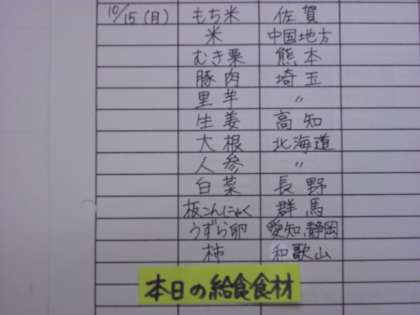 10/15(日) もち米 佐賀
米 中国地方
むき栗 熊本
豚肉 埼玉
里芋 〃
生姜 高知
大根 北海道
人参 〃
白菜 長野
板こんにゃく 群馬
うずら卵 愛知、静岡
柿 和歌山
本日の給食食材